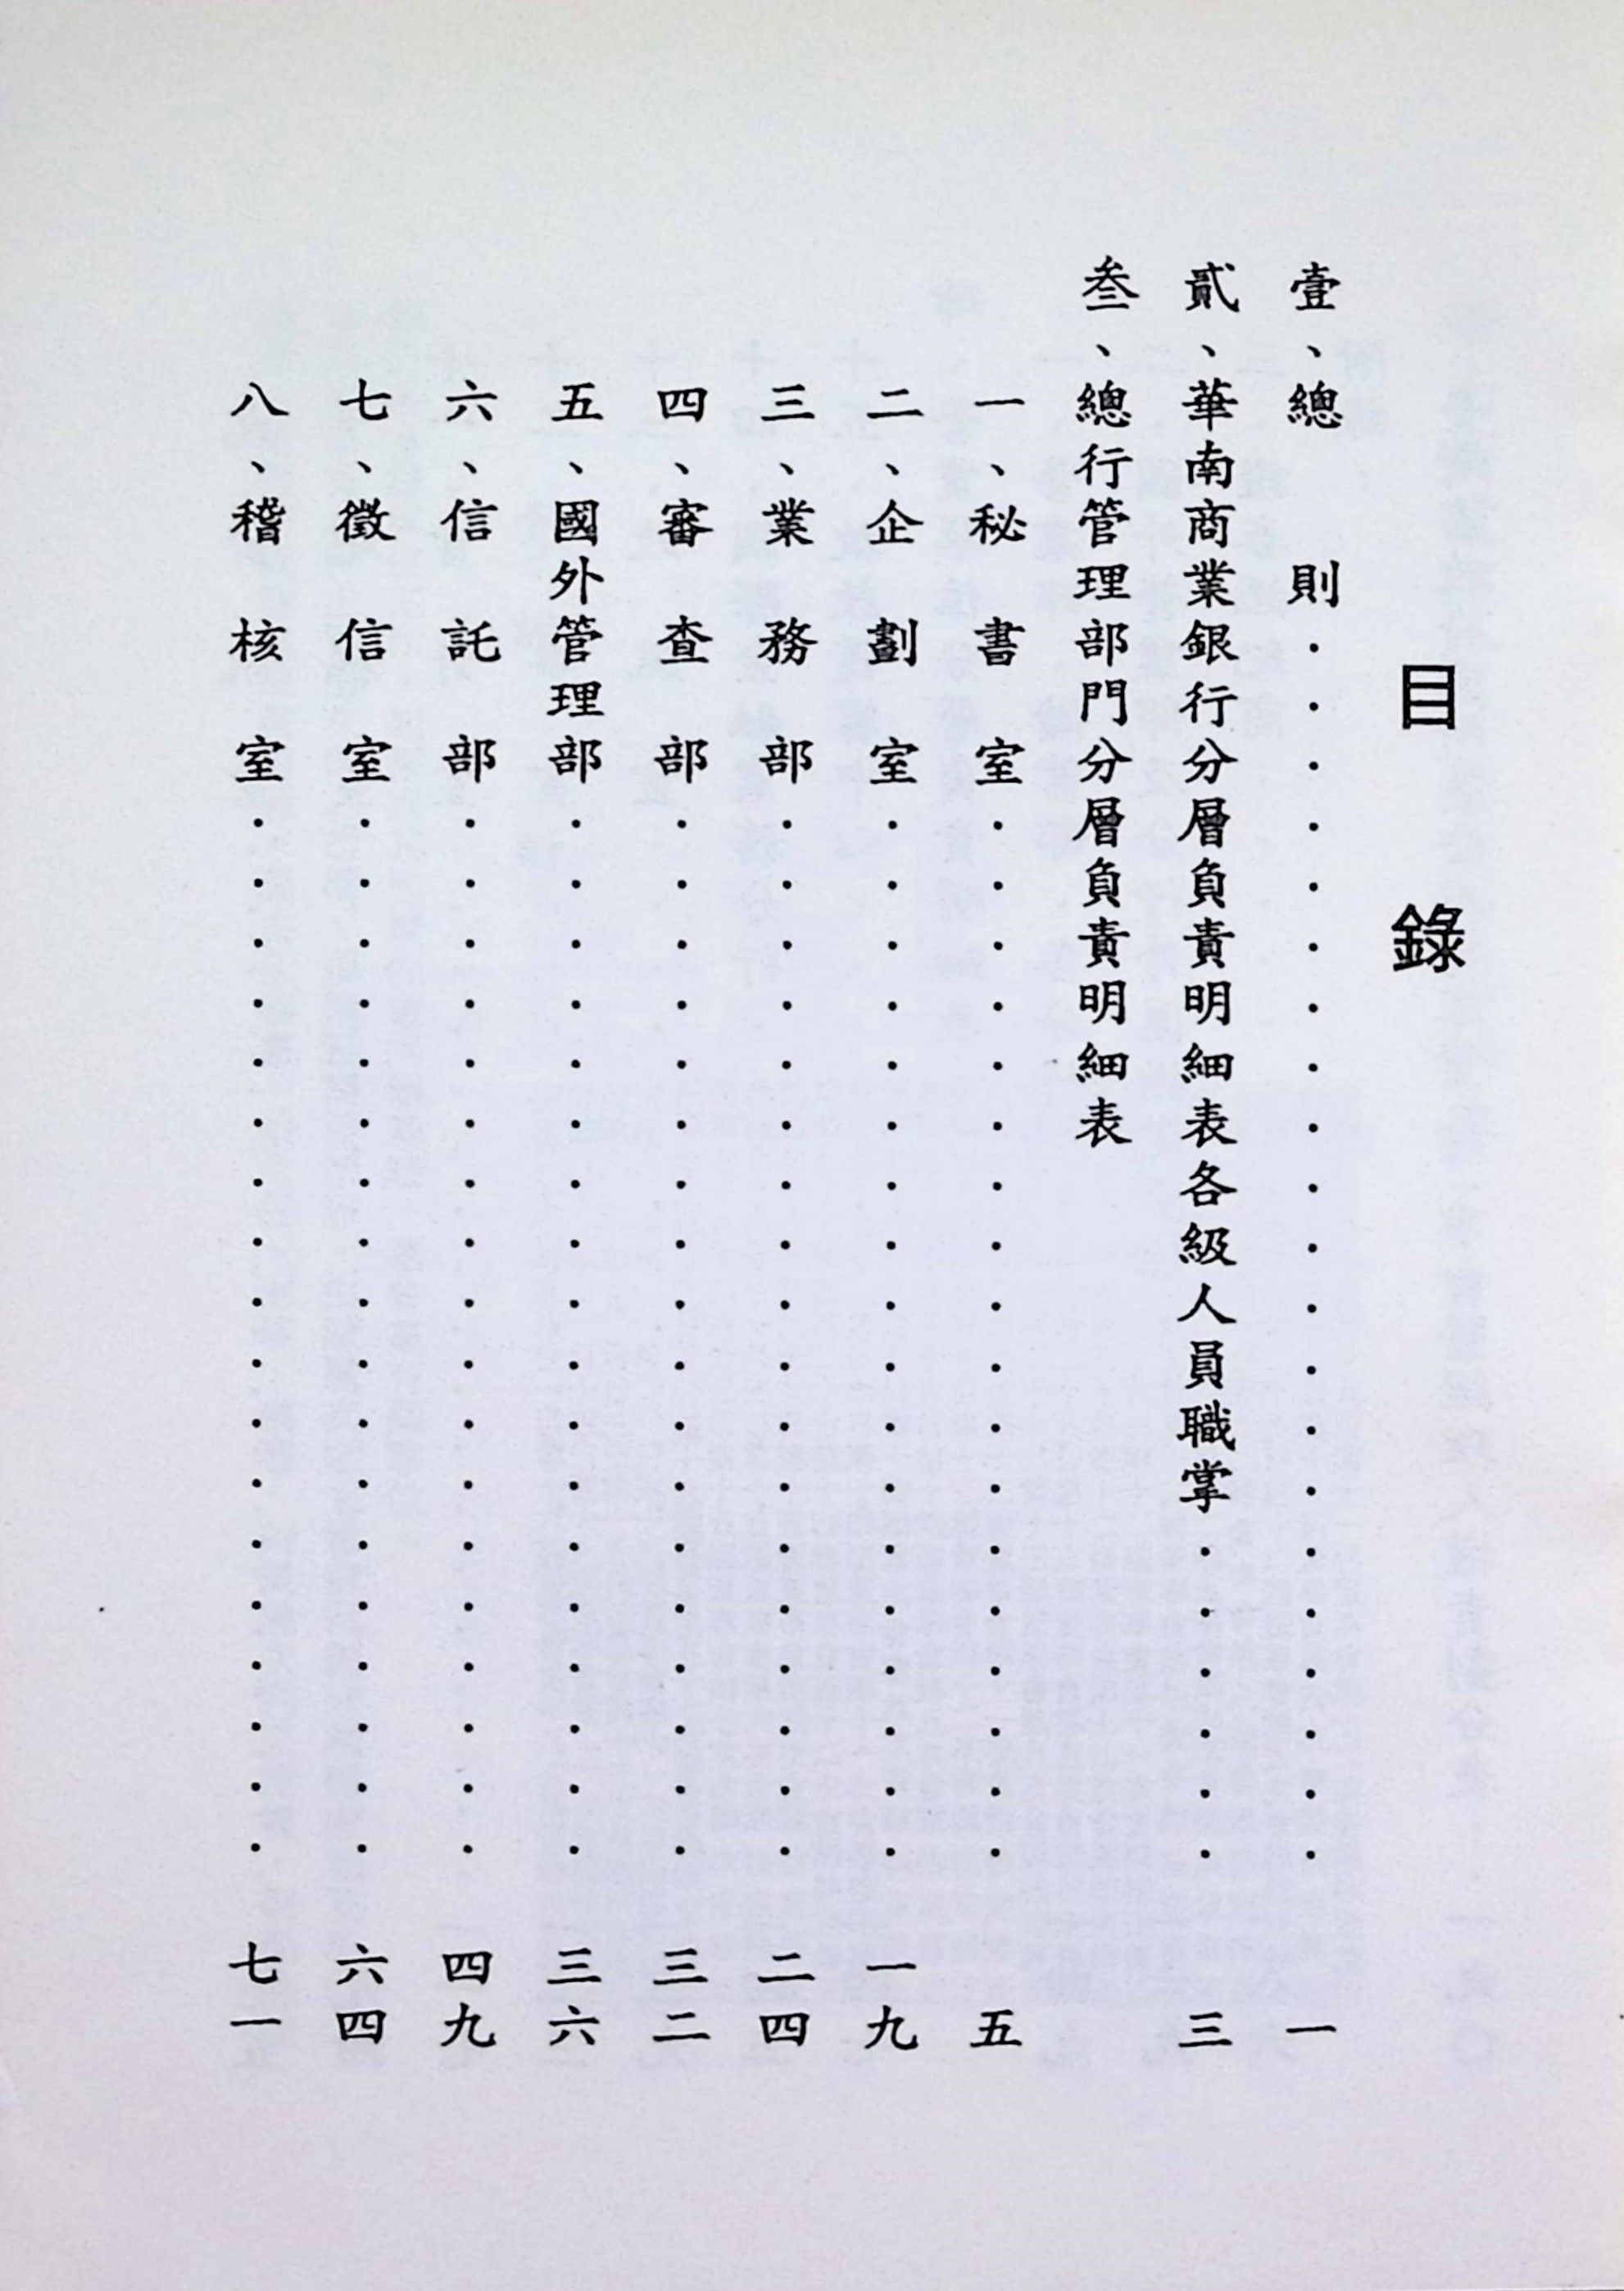 目錄
壹、總則．．．．．．．．．．．．．．．．．．．．．一
貳、華南商業銀行分層負責明細表各級人員職掌．．．．．．三
叁、總行管理部門分層負責明細表
一、秘書室．．．．．．．．．．．．．．．．．．五
二、企劃室．．．．．．．．．．．．．．．．．．一九
三、業務部．．．．．．．．．．．．．．．．．．二四
四、審查部．．．．．．．．．．．．．．．．．．三二
五、國外管理部．．．．．．．．．．．．．．．．．．三六
六、信託部．．．．．．．．．．．．．．．．．．四九
七、徵信室．．．．．．．．．．．．．．．．．．六四
八、稽核室．．．．．．．．．．．．．．．．．．七一